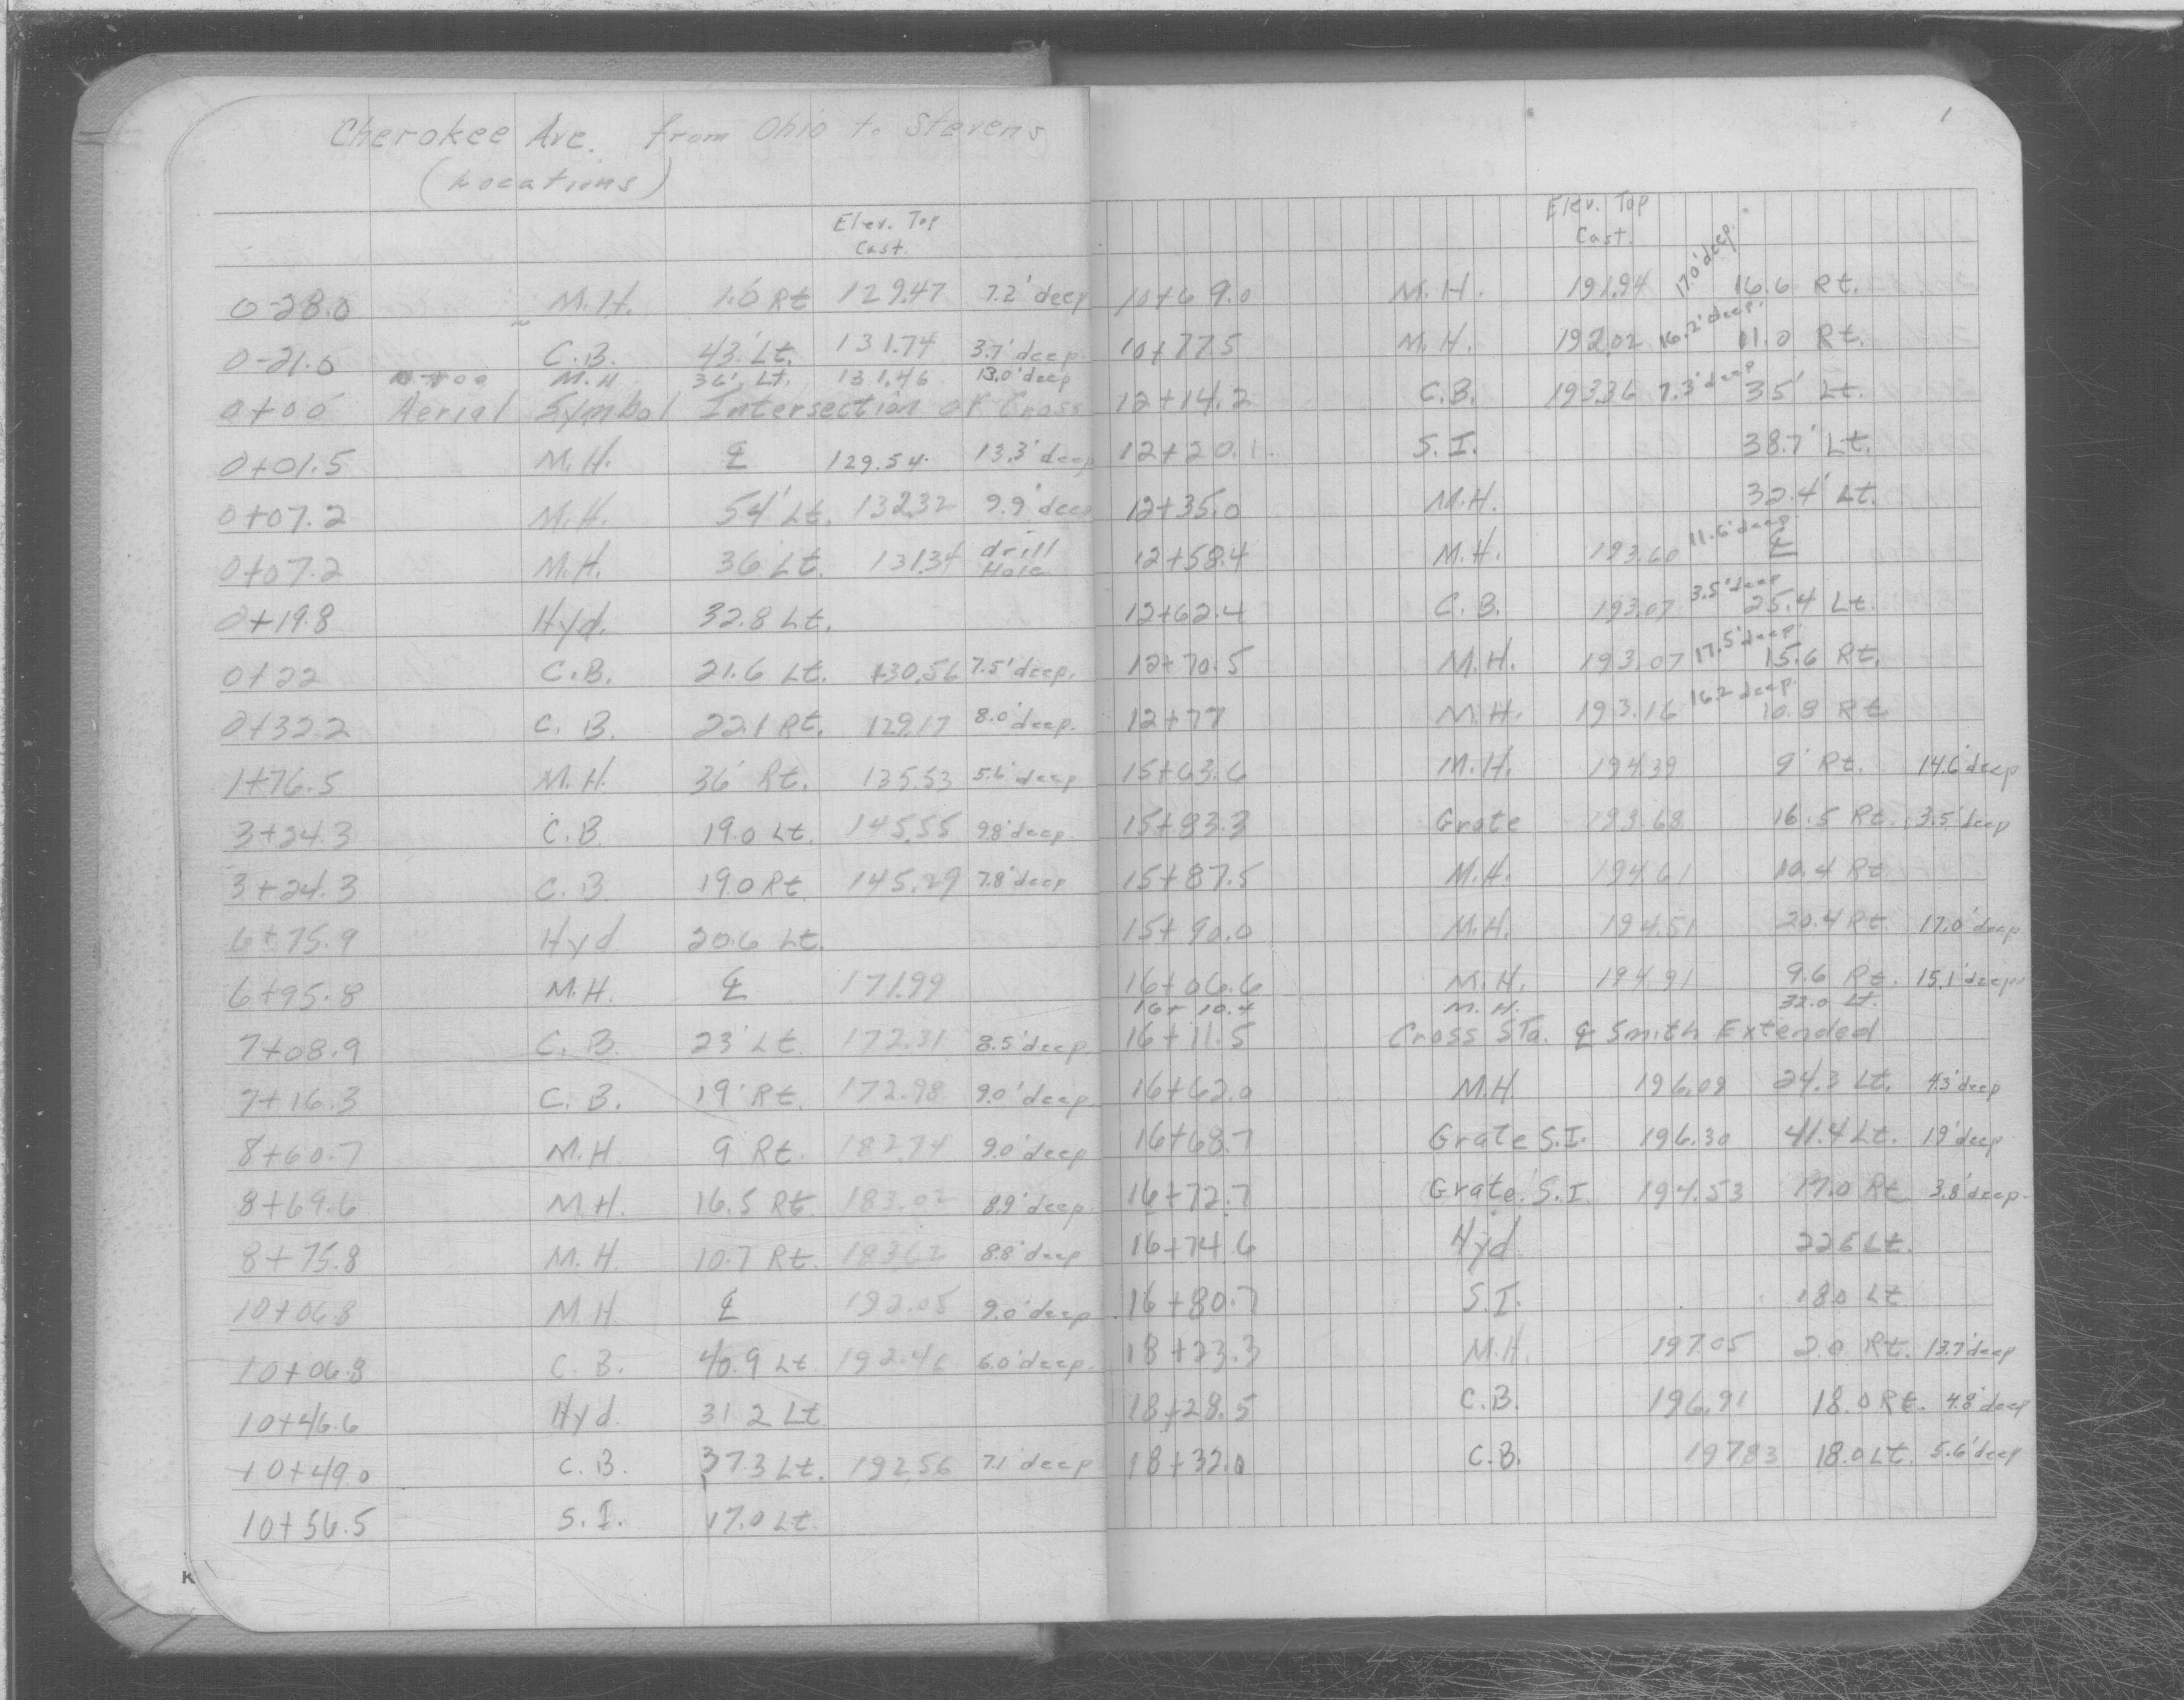 Cherokee Ave. from Ohio to Stevens
(Locations)
Elev. Top
Cast.
0-28.0 M.H. 1.6 Rt 129.47 7.2' deep
0-21.0 C.B. 43' Lt. 131.74 3.7' deep.
M.H 36' Lt. 131.46 13.0' deep
0+00 Aerial Symbol Intersection of Cross
0+01.5 M.H. ℄ 129.54 13.3' deep
0+07.2 M.H. 54' Lt. 132.32 9.9' deep
0+07.2 M.H. 36 Lt. 131.34 drill Hole
0+19.8 Hyd. 32.8 Lt.
0+22 C.B. 21.6 Lt. 130.56 7.5' deep.
0+32.2 C.B. 22.1 Rt. 129.17 8.0' deep.
1+76.5 M.H. 36' Rt. 135.53 5.6' deep
3+24.3 C.B 19.0 Lt. 145.55 9.8' deep.
3+24.3 C.B. 19.0 Rt 145.29 7.8' deep
6+75.9 Hyd 20.6 Lt.
6+95.8 M.H. ℄ 171.99
7+08.9 C.B. 23' Lt. 172.31 8.5' deep.
7+16.3 C.B. 19' Rt. 172.98 9.0' deep.
8+60.7 M.H 9 Rt. 182.74 9.0' deep
8+69.6 M.H. 16.5 Rt. 183.02 8.9' deep.
8+75.8 M.H. 10.7 Rt. 183.62 8.8' deep
10+06.8 M.H ℄ 192.05 9.0' deep
10+06.8 C.B. 40.9 Lt 192.46 6.0' deep.
10+46.6 Hyd. 31.2 Lt
10+49.0 C.B. 37.3 Lt. 192.56 7.1' deep
10+56.5 S.I. 17.0 Lt.
1
Elev. Top
Cast.
10+69.0 M.H. 191.94 17.0' deep. 16.6 Rt.
10+77.5 M.H. 192.02 16.2' deep. 11.0 Rt.
12+14.2 C.B. 193.36 7.3' deep 35' Lt.
12+20.1 S.I. 38.7' Lt.
12+35.0 M.H. 32.4' Lt.
12+58.4 M.H. 193.60 11.6' deep ℄
12+62.4 C.B. 193.07 3.5' deep 25.4 Lt.
12+70.5 M.H. 193.07 17.5' deep. 15.6 Rt.
12+77 M.H. 193.16 16.2 deep. 10.8 Rt
15+63.6 M.H. 194.39 9' Rt. 14.6' deep
15+83.3 Grate 193.68 16.5 Rt. 3.5' deep
15+87.5 M.H. 194.61 10.4 Rt
15+90.0 M.H. 194.51 20.4 Rt. 17.0' deep
16+06.6 M.H. 194.91 9.6 Rt. 15.1' deep.
16+10.4 M.H. 32.0 Lt.
16+11.5 Cross Sta. ℄ Smith Extended
16+62.0 M.H. 196.09 24.3 Lt. 4.3' deep
16+68.7 Grate S.I. 196.30 41.4 Lt. 1.9' deep
16+72.7 Grate. S.I. 194.53 17.0 Rt. 3.8' deep.
16+74.6 Hyd 22.6 Lt.
16+80.7 S.I. 18.0 Lt
18+23.3 M.H. 197.05 2.0 Rt. 13.7' deep
18+28.5 C.B. 196.91 18.0 Rt. 4.8' deep
18+32.0 C.B. 197.83 18.0 Lt. 5.6' deep